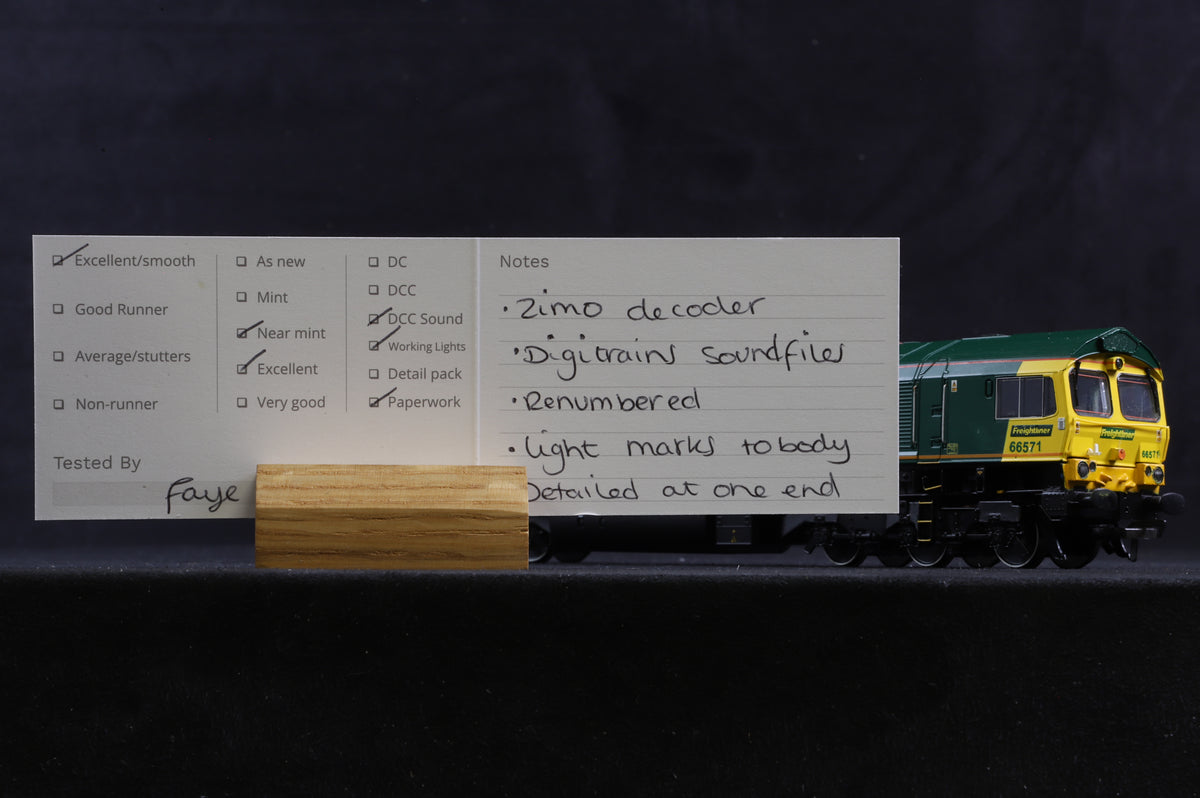 Excellent/smooth
Good Runner
Average/stutters
Non-runner
Tested By
Faye
As new
Mint
Near mint
Excellent
Very good
DC
DCC
DCC Sound
Working Lights
Detail pack
Paperwork
Notes
• Zimo decoder
• Digitrains soundfiles
• Renumbered
• light marks to body
Detailed at one end
Freightliner
66571
Freightliner
66571